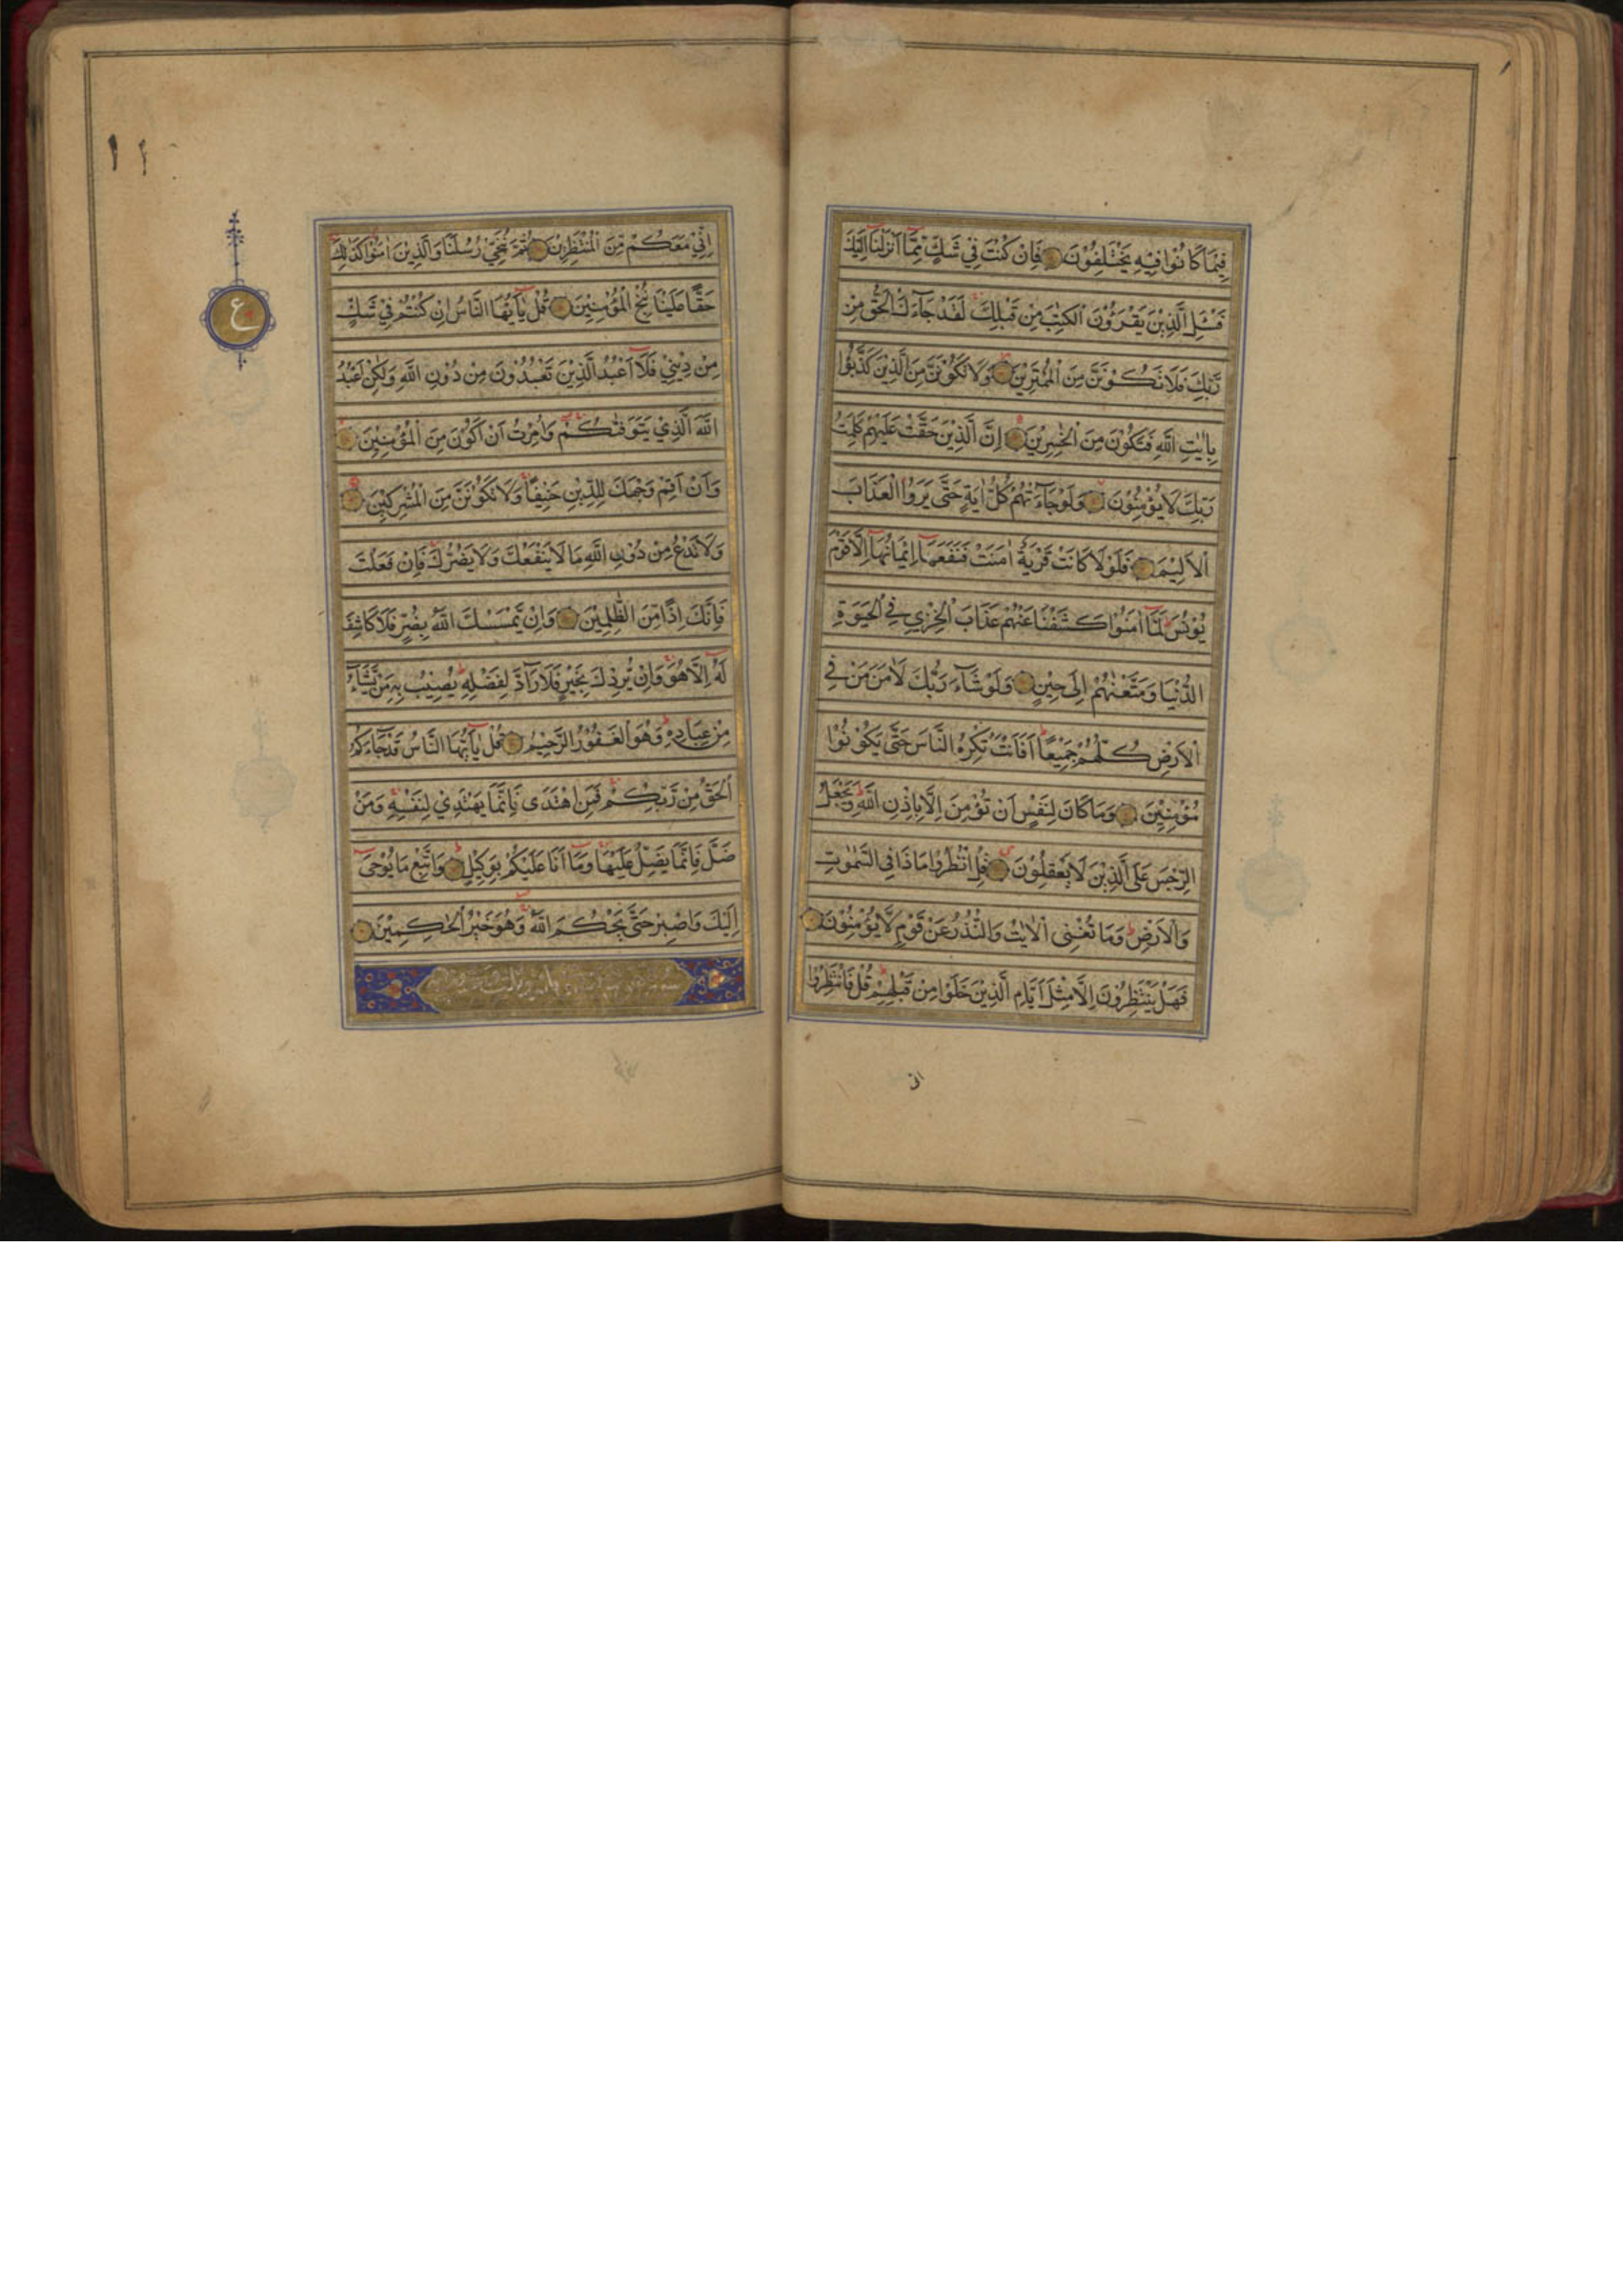 فِيمَا كَانُوا فِيهِ يَخْتَلِفُوْنَ فَاِنْ كُنْتَ فِي شَكٍّ مِمَّٓا اَنْزَلْنَٓا اِلَيْكَ
فَسْـَٔلِ الَّذِيْنَ يَقْرَؤُنَ الْكِتٰبَ مِنْ قَبْلِكَ لَقَدْ جَآءَكَ الْحَقُّ مِنْ
رَبِّكَ فَلَا تَكُوْنَنَّ مِنَ الْمُمْتَرِيْنَ وَلَا تَكُوْنَنَّ مِنَ الَّذِيْنَ كَذَّبُوْا
بِاٰيٰتِ اللّٰهِ فَتَكُوْنَ مِنَ الْخٰسِرِيْنَ اِنَّ الَّذِيْنَ حَقَّتْ عَلَيْهِمْ كَلِمَتُ
رَبِّكَ لَا يُؤْمِنُوْنَ وَلَوْ جَآءَتْهُمْ كُلُّ اٰيَةٍ حَتّٰى يَرَوُا الْعَذَابَ
الْاَلِيْمَ فَلَوْلَا كَانَتْ قَرْيَةٌ اٰمَنَتْ فَنَفَعَهَٓا اِيْمَانُهَٓا اِلَّا قَوْمَ
يُوْنُسَ لَمَّٓا اٰمَنُوْا كَشَفْنَا عَنْهُمْ عَذَابَ الْخِزْيِ فِي الْحَيٰوةِ
الدُّنْيَا وَمَتَّعْنٰهُمْ اِلٰى حِيْنٍ وَلَوْ شَآءَ رَبُّكَ لَاٰمَنَ مَنْ فِي
الْاَرْضِ كُلُّهُمْ جَمِيْعًا اَفَاَنْتَ تُكْرِهُ النَّاسَ حَتّٰى يَكُوْنُوْا
مُؤْمِنِيْنَ وَمَا كَانَ لِنَفْسٍ اَنْ تُؤْمِنَ اِلَّا بِاِذْنِ اللّٰهِ وَيَجْعَلُ
الرِّجْسَ عَلَى الَّذِيْنَ لَا يَعْقِلُوْنَ قُلِ انْظُرُوْا مَاذَا فِي السَّمٰوٰتِ
وَالْاَرْضِ وَمَا تُغْنِي الْاٰيٰتُ وَالنُّذُرُ عَنْ قَوْمٍ لَا يُؤْمِنُوْنَ
فَهَلْ يَنْتَظِرُوْنَ اِلَّا مِثْلَ اَيَّامِ الَّذِيْنَ خَلَوْا مِنْ قَبْلِهِمْ قُلْ فَانْتَظِرُوْا
انی
اِنِّيْ مَعَكُمْ مِنَ الْمُنْتَظِرِيْنَ ثُمَّ نُنَجِّيْ رُسُلَنَا وَالَّذِيْنَ اٰمَنُوْا كَذٰلِكَ
حَقًّا عَلَيْنَا نُنْجِ الْمُؤْمِنِيْنَ قُلْ يٰٓاَيُّهَا النَّاسُ اِنْ كُنْتُمْ فِيْ شَكٍّ
مِنْ دِيْنِيْ فَلَٓا اَعْبُدُ الَّذِيْنَ تَعْبُدُوْنَ مِنْ دُوْنِ اللّٰهِ وَلٰكِنْ اَعْبُدُ
اللّٰهَ الَّذِيْ يَتَوَفّٰىكُمْ وَاُمِرْتُ اَنْ اَكُوْنَ مِنَ الْمُؤْمِنِيْنَ
وَاَنْ اَقِمْ وَجْهَكَ لِلدِّيْنِ حَنِيْفًا وَلَا تَكُوْنَنَّ مِنَ الْمُشْرِكِيْنَ
وَلَا تَدْعُ مِنْ دُوْنِ اللّٰهِ مَا لَا يَنْفَعُكَ وَلَا يَضُرُّكَ فَاِنْ فَعَلْتَ
فَاِنَّكَ اِذًا مِنَ الظّٰلِمِيْنَ وَاِنْ يَمْسَسْكَ اللّٰهُ بِضُرٍّ فَلَا كَاشِفَ
لَهُٓ اِلَّا هُوَ وَاِنْ يُرِدْكَ بِخَيْرٍ فَلَا رَآدَّ لِفَضْلِهٖ يُصِيْبُ بِهٖ مَنْ يَشَآءُ
مِنْ عِبَادِهٖ وَهُوَ الْغَفُوْرُ الرَّحِيْمُ قُلْ يٰٓاَيُّهَا النَّاسُ قَدْ جَآءَكُمُ
الْحَقُّ مِنْ رَبِّكُمْ فَمَنِ اهْتَدٰى فَاِنَّمَا يَهْتَدِيْ لِنَفْسِهٖ وَمَنْ
ضَلَّ فَاِنَّمَا يَضِلُّ عَلَيْهَا وَمَٓا اَنَا عَلَيْكُمْ بِوَكِيْلٍ وَاتَّبِعْ مَا يُوْحٰٓى
اِلَيْكَ وَاصْبِرْ حَتّٰى يَحْكُمَ اللّٰهُ وَهُوَ خَيْرُ الْحٰكِمِيْنَ
ع